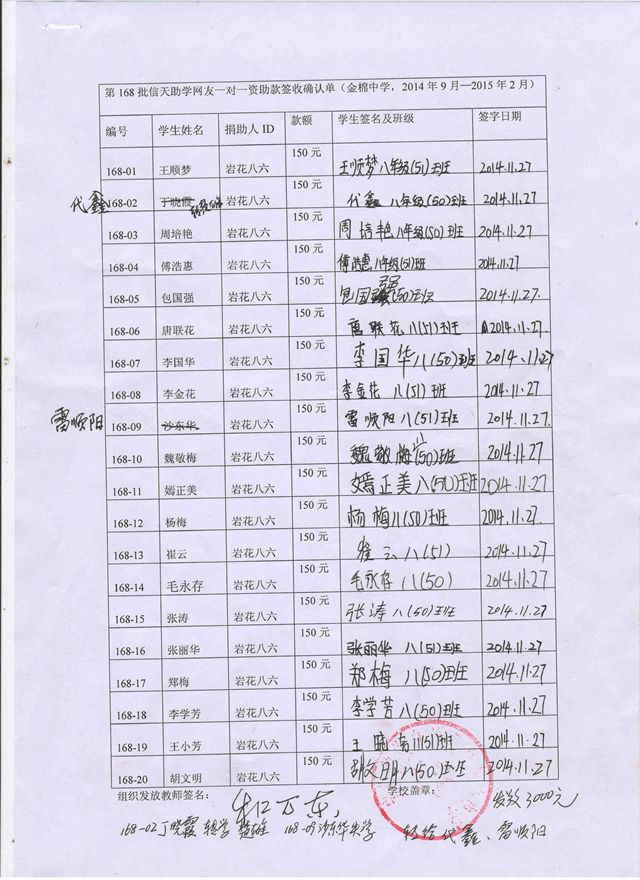 第168批信天助学网友一对一资助款签收确认单（金棉中学，2014年9月—2015年2月）
编号 学生姓名 捐助人ID 款额 学生签名及班级 签字日期
168-01 王顺梦 岩花八六 150元 王顺梦 八年级(51)班 2014.11.27
代鑫 168-02 丁晓霞 岩花八六 150元 代鑫 八年级(50)班 2014.11.27
168-03 周培艳 岩花八六 150元 周培艳 八年级(50)班 2014.11.27
168-04 傅浩惠 岩花八六 150元 傅浩惠 八年级(51)班 2014.11.27
168-05 包国强 岩花八六 150元 包国强(50)班 2014.11.27.
168-06 唐联花 岩花八六 150元 唐联花 八(51)班 2014.11.27.
168-07 李国华 岩花八六 150元 李国华 八(50)班 2014.11.27
168-08 李金花 岩花八六 150元 李金花 八(51)班 2014.11.27
雷顺阳 168-09 沙东华 岩花八六 150元 雷顺阳 八(51)班 2014.11.27.
168-10 魏敬梅 岩花八六 150元 魏敬梅 八(50)班 2014.11.27
168-11 嫣正美 岩花八六 150元 嫣正美 八(51)班 2014.11.27
168-12 杨梅 岩花八六 150元 杨梅 八(50)班 2014.11.27.
168-13 崔云 岩花八六 150元 崔云 八(51) 2014.11.27
168-14 毛永存 岩花八六 150元 毛永存 八(50) 2014.11.27
168-15 张涛 岩花八六 150元 张涛 八(50)班 2014.11.27
168-16 张丽华 岩花八六 150元 张丽华 八(51)班 2014.11.27
168-17 郑梅 岩花八六 150元 郑梅 八(50)班 2014.11.27
168-18 李学芳 岩花八六 150元 李学芳 八(50)班 2014.11.27
168-19 王小芳 岩花八六 150元 王晓芳 八(51)班 2014.11.27
168-20 胡文明 岩花八六 150元 胡文明 八(50)班 2014.11.27
组织发放教师签名： 学校盖章： 发款3000元
168-02丁晓霞转学楚雄 168-09沙东华失学 转给代鑫、雷顺阳